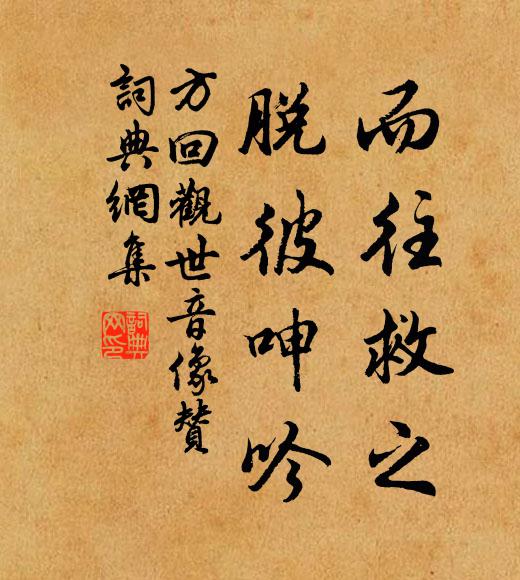 而往救之
脫彼呻吟
方回觀世音像贊
詞典網集
詞典
网印